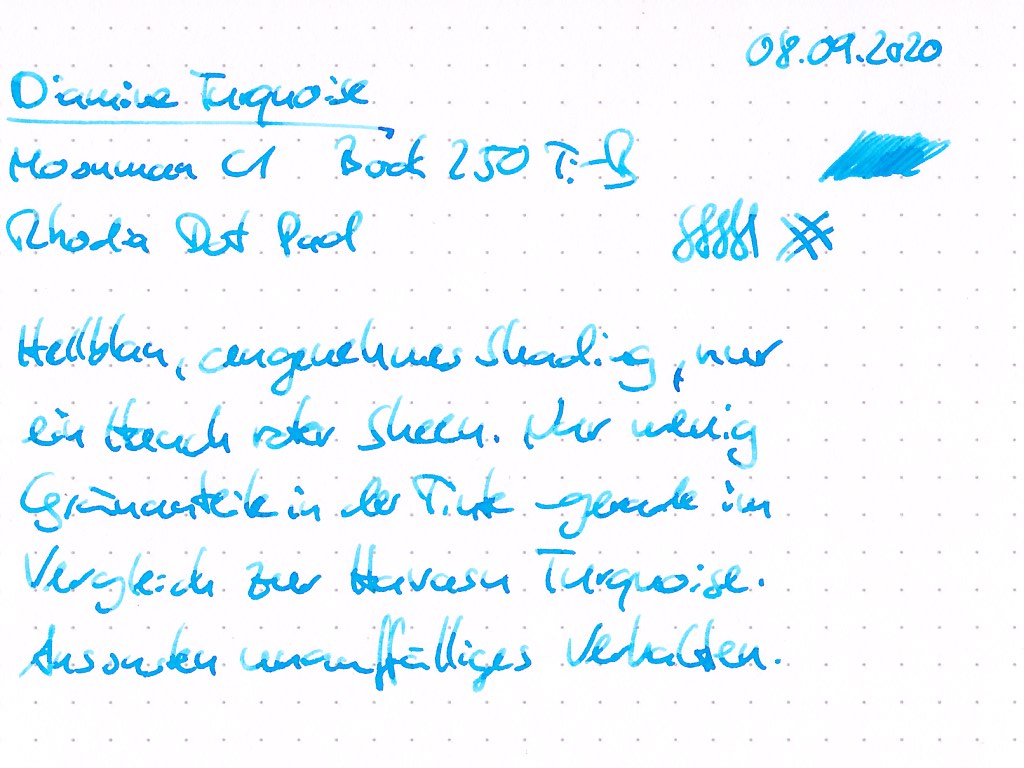 08.09.2020
Diamine Turquoise
Moonman C1 Bock 250 Ti-B
Rhodia Dot Pad
Hellblau, angenehmes Shading, nur
ein Hauch roter Sheen. Nur wenig
Grünanteile in der Tinte - gerade im
Vergleich zur Havasu Turquoise.
Ansonsten unauffälliges Verhalten.